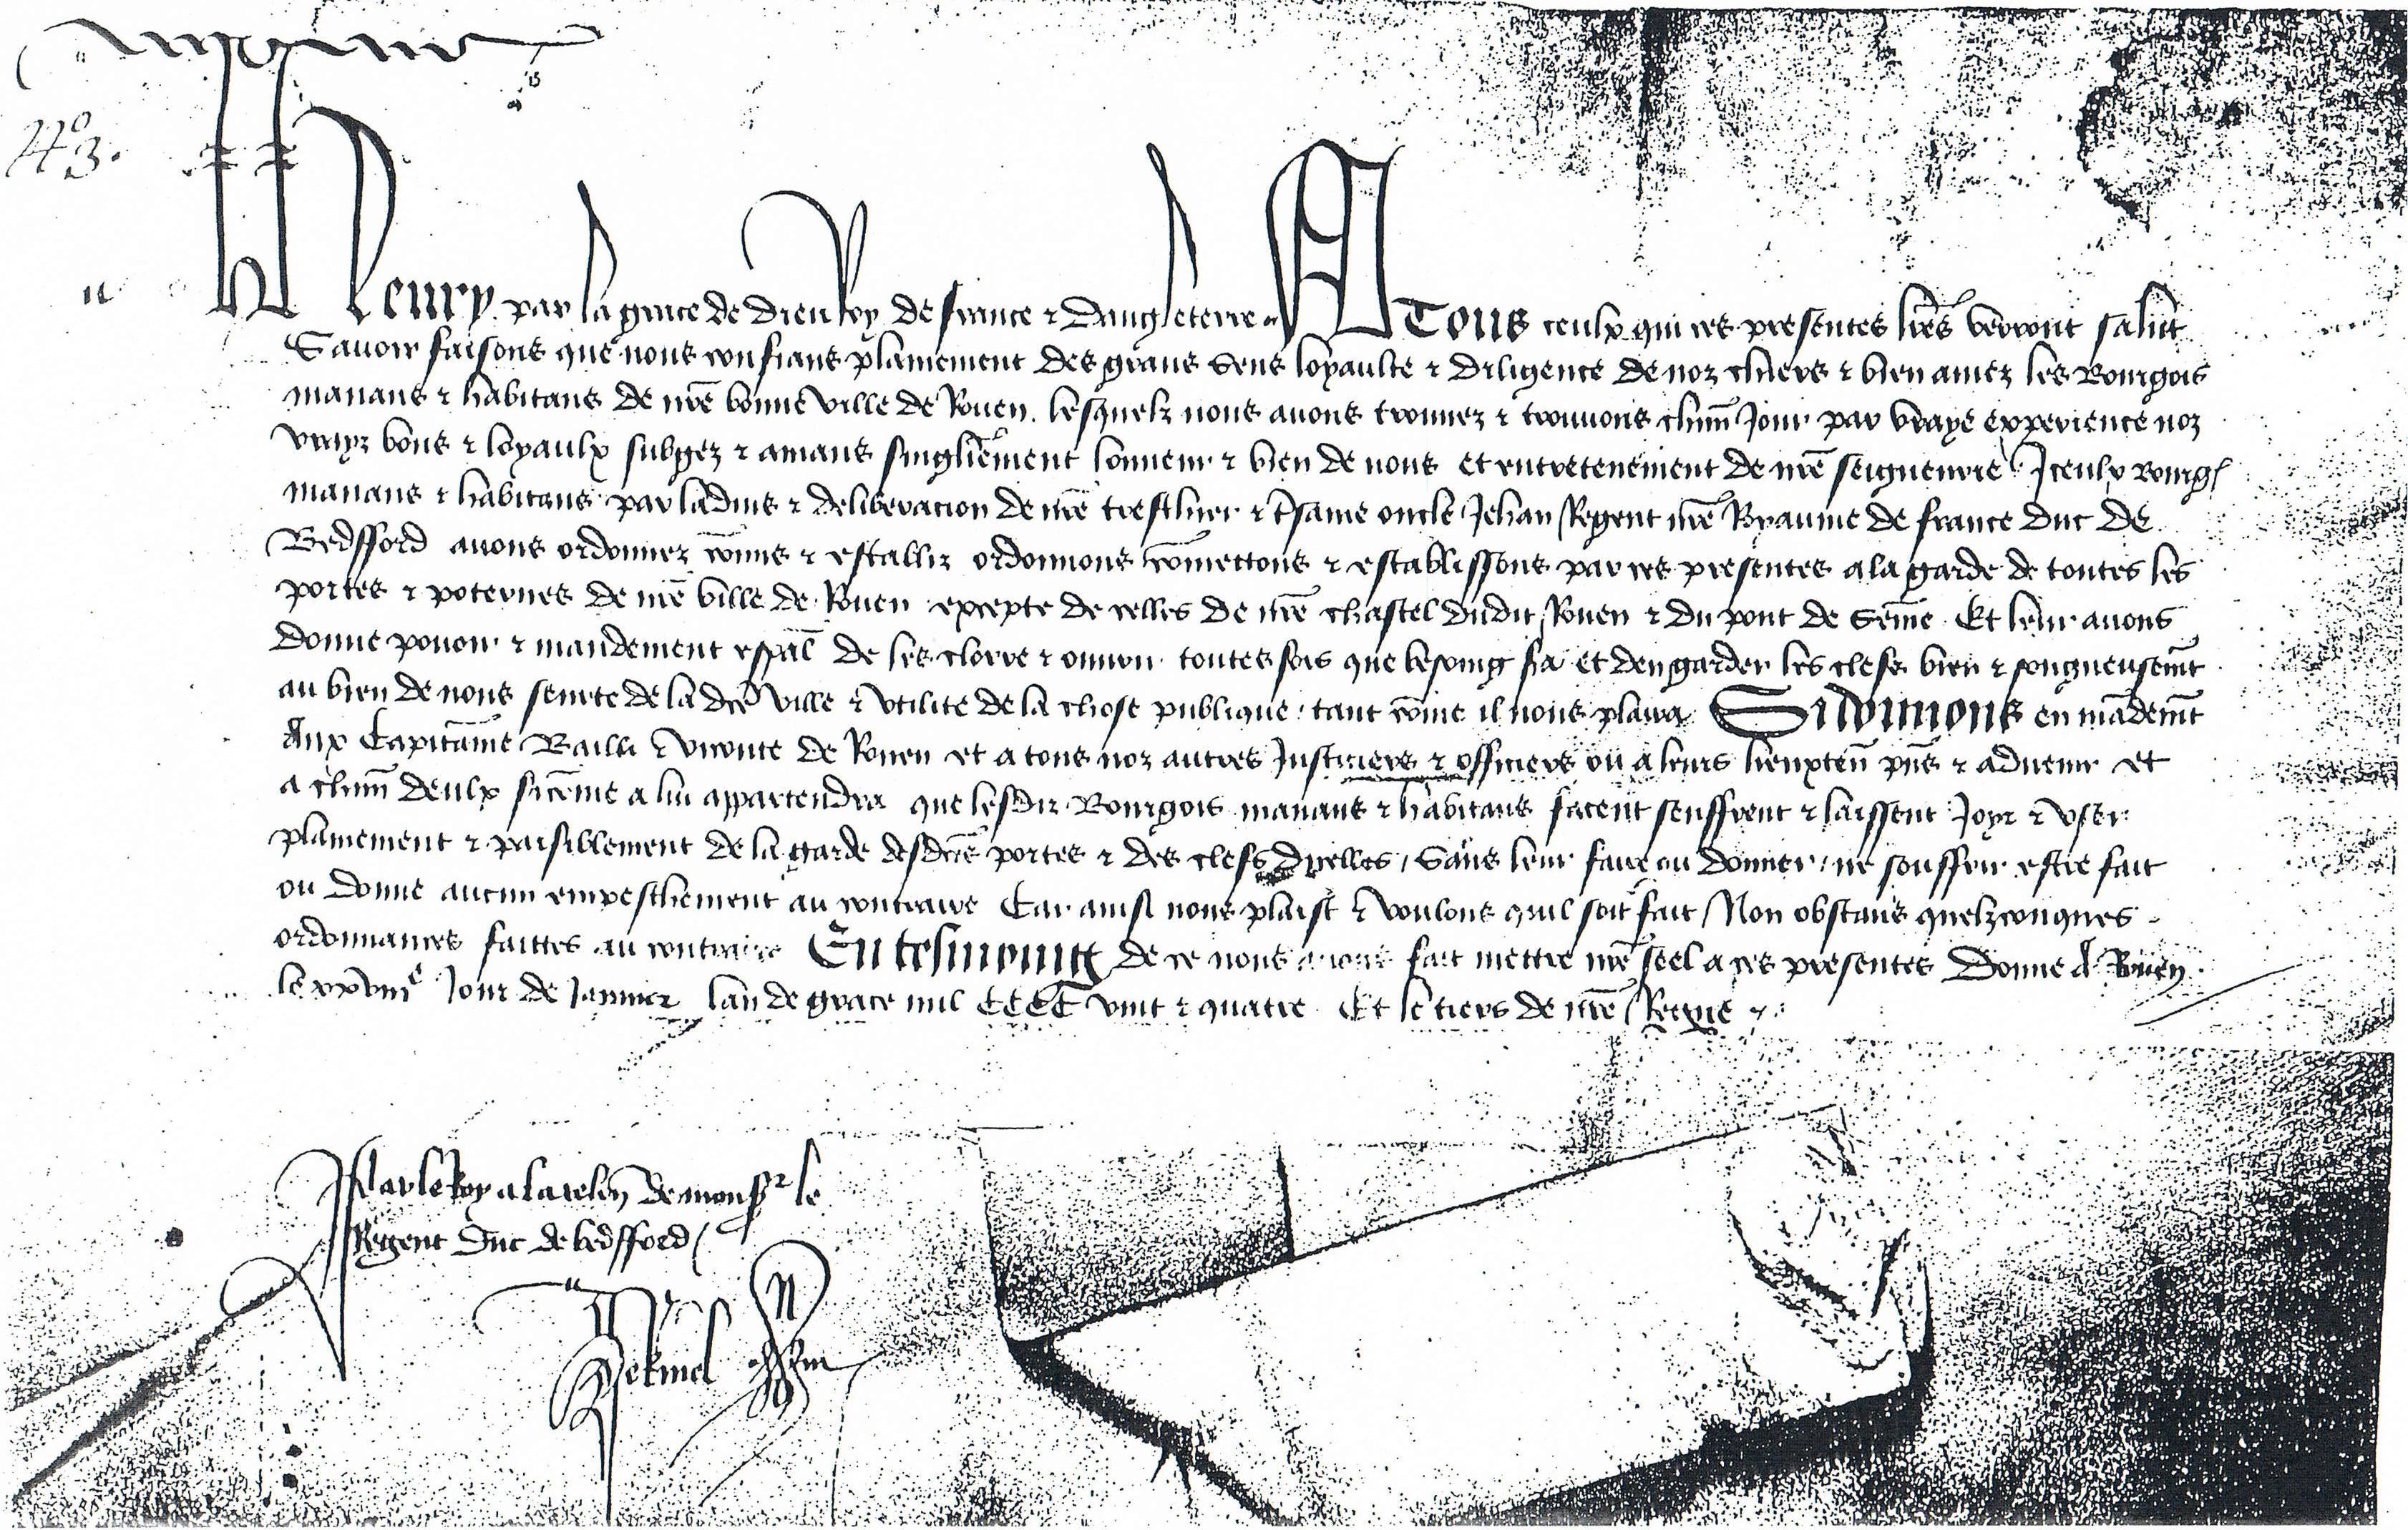 43.
Henry par la grace de dieu Roy de france & dangleterre A Tous ceulx qui ces presentes lres verront salut
Savoir faisons que nous confians plainement des grans sens loyaulte & diligence de noz chiers & bien amez les Bourgois
manans & habitans de nre bonne ville de Rouen. lesquelz nous avons trouvez & trouvons chun Jour par vraye experience noz
vrayz bons & loyaulx subgez & amans singlierement lonneur & bien de nous et entretenement de nre seigneurie Iceulx Bourg
manans & habitans par ladvis & deliberacion de nre treschier & tsame oncle Jehan Regent nre Royaume de france duc de
Bedfford avons ordonnez comis & establiz ordonnons comettons & establissons par ces presentes a la garde de toutes les
portes & poternes de nre ville de Rouen excepte de celles de nre chastel dudit Rouen & du pont de Seine Et leur avons
donne povoir & mandement espal de les clorre & ouvrir toutesfois que besoing sa et den garder les clefs bien & songneusemt
au bien de nous seurte de la dce ville & utilite de la chose publique tant come il nous plaira Si donnons en mademt
Aux Capitaine Bailli & viconte de Rouen et a tous noz autres Justiciers & officiers ou a leurs lieuxten pns & advenir et
a chun deulx sicome a lui appartendra que lesdiz Bourgois manans & habitans facent seuffrent & laissent Joyr & user
plainement & paisiblement de la garde desdces portes & des clefs dicelles / Sans leur faire ou donner / ne souffrir estre fait
ou donne aucun empeschement au contraire Car ainsi nous plaist & voulons quil soit fait / Non obstans quelzconques
ordonnances faittes au contraire En tesmoing de ce nous avons fait mettre nre seel a ces presentes Donne A Rouen
le xxviiie Jour de Janvier lan de grace mil CCCC vint & quatre Et le tiers de nre Regne
Par le Roy a la relon de monsr le
Regent duc de bedfford /